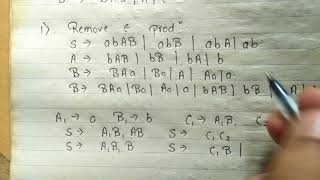 1). Remove ε prodⁿ
S → abAB | abB | abA | ab
A → bAB | bB | bA | b
B → BAa | Ba | A | Aa | a
B → BAa | Ba | Aa | a | bAB | bB | A |
A₁ → a B₁ → b C₁ →
S → A₁B₁AB S → C₁C₂
S → A₁B₁B S → C₁B |